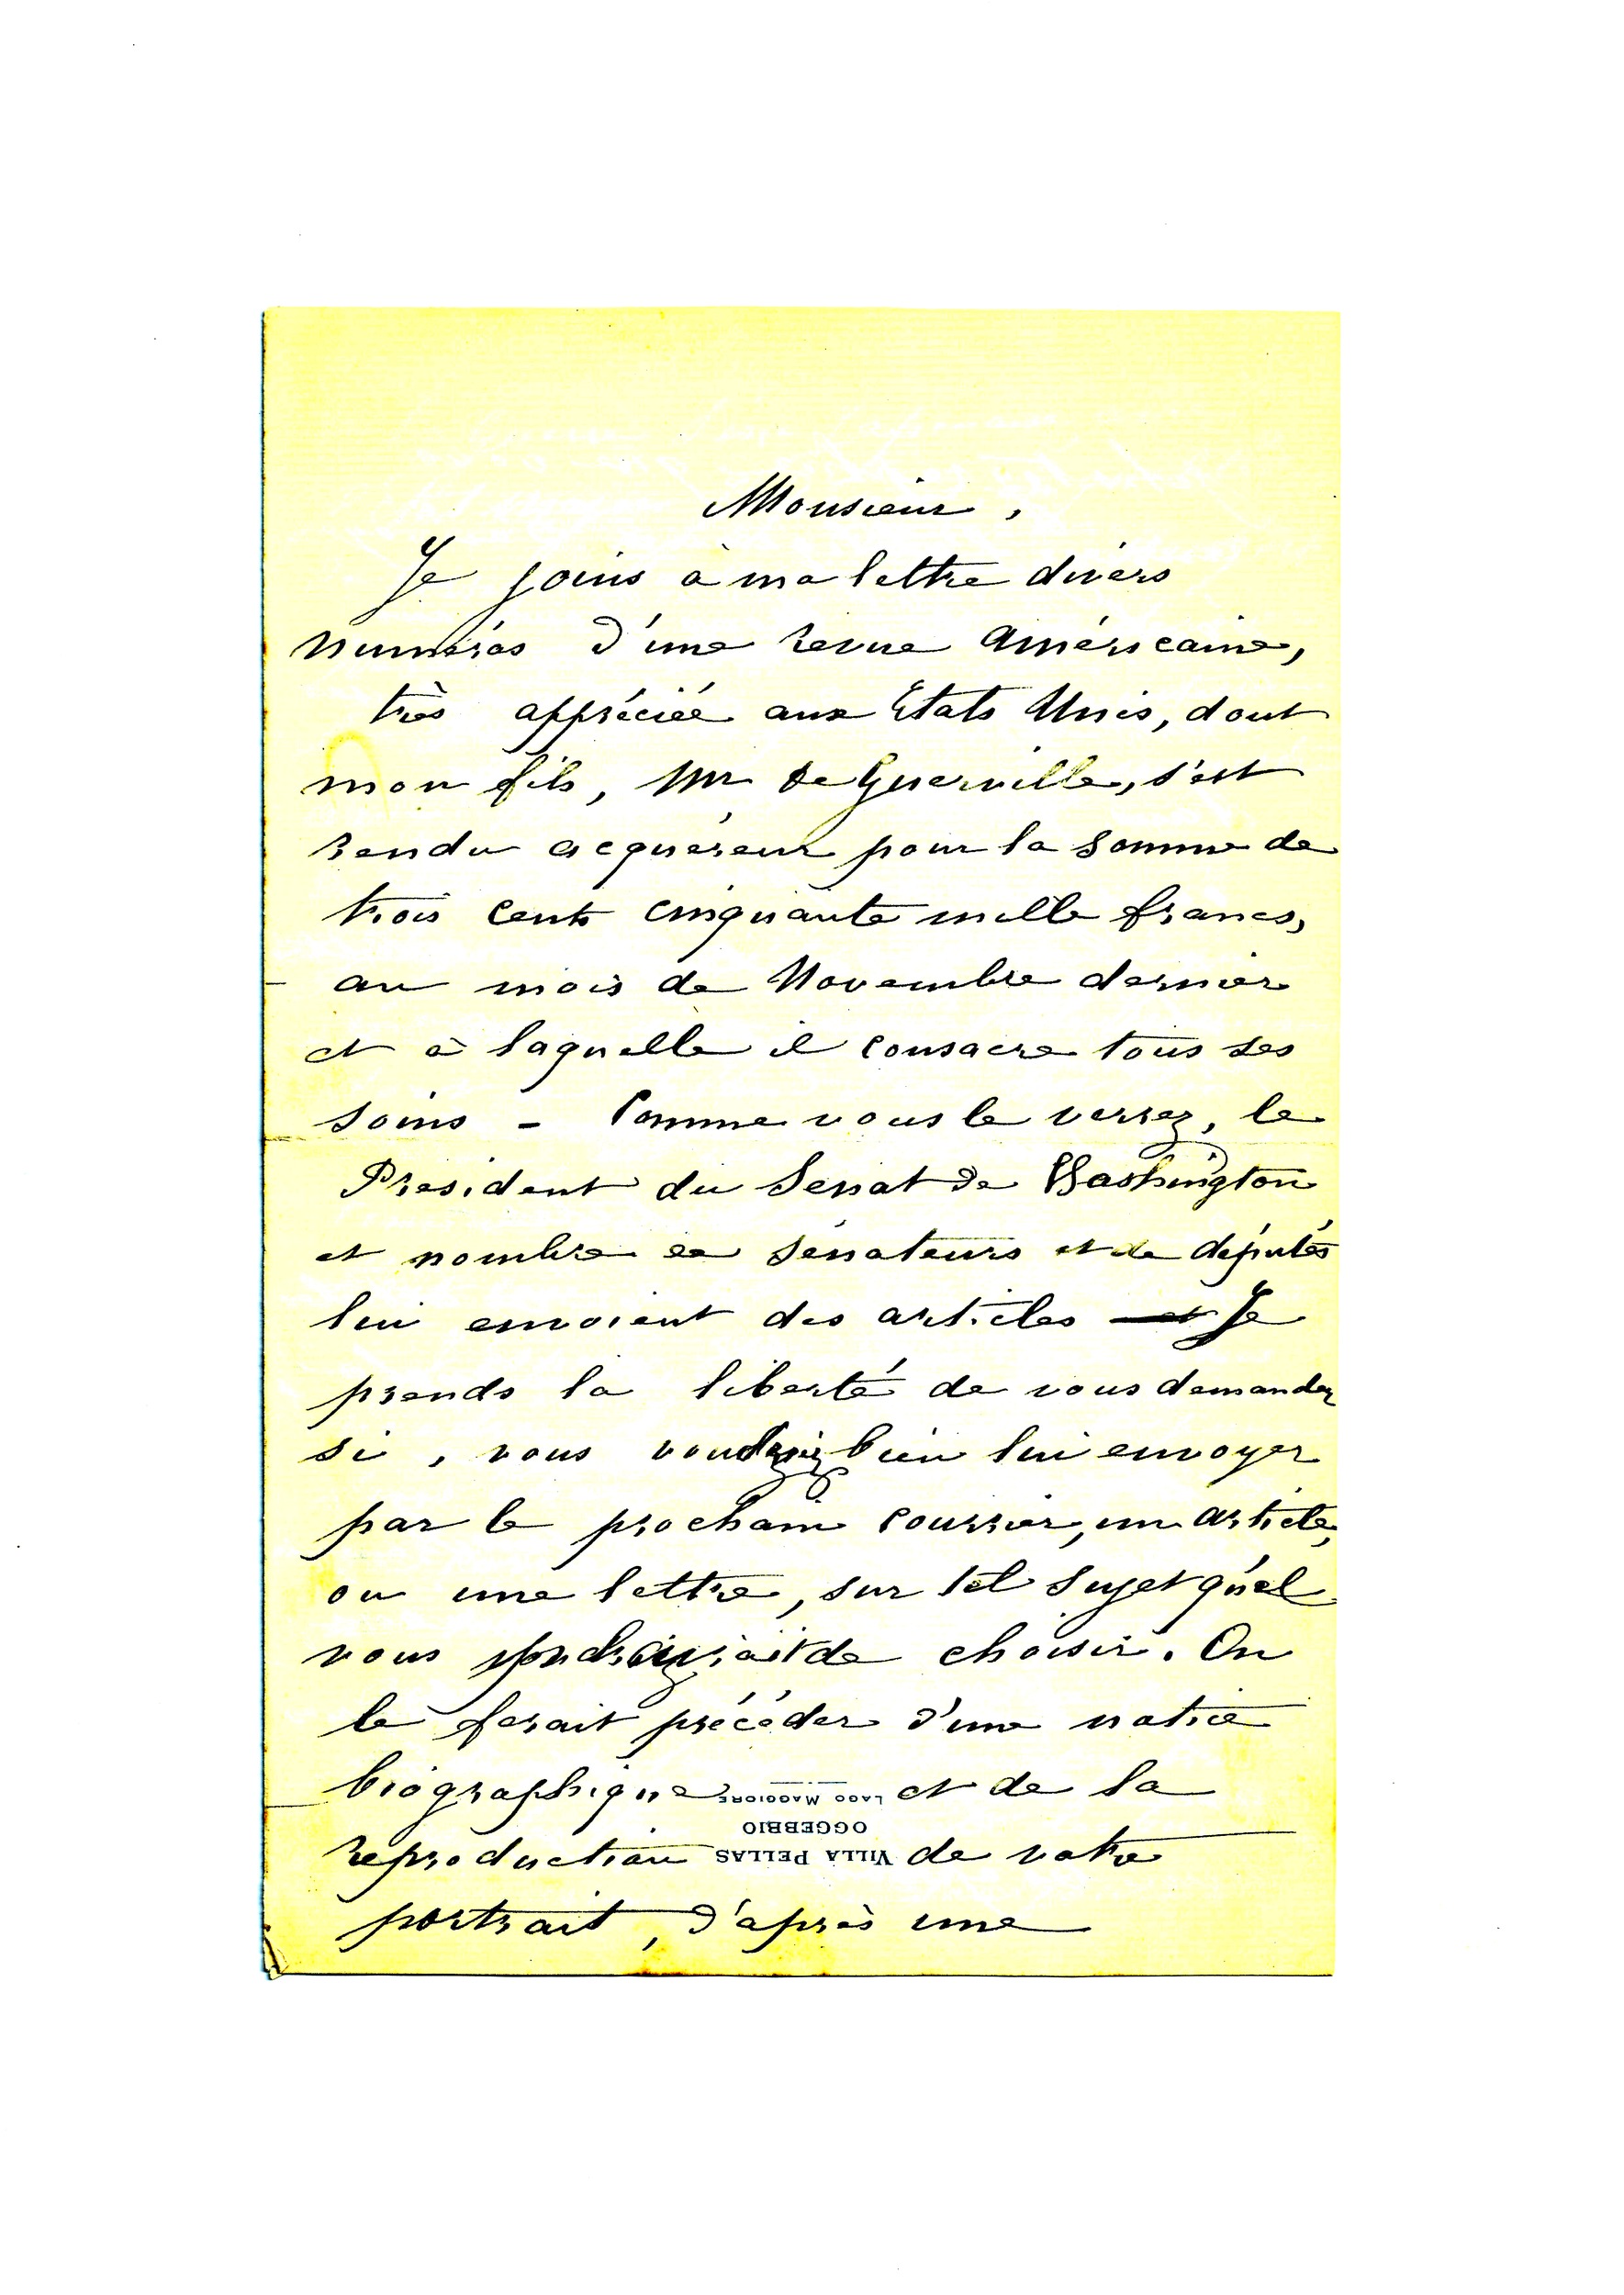 Monsieur,
Je joins à ma lettre divers
numéros d'une revue américaine,
très appréciée aux Etats Unis, dont
mon fils, Mr de Guerville, s'est
rendu acquéreur pour la somme de
trois cents cinquante mille francs,
au mois de Novembre dernier
et à laquelle il consacre tous ses
soins - Comme vous le verrez, le
President du Sénat de Washington
et nombre de Sénateurs et de députés
lui envoient des articles et Je
prends la liberté de vous demander
si, vous bien lui envoyer
par le prochain courrier, un article,
ou une lettre, sur tel sujet qu'il
vous de choisir. On
le ferait précéder d'une notice
biographique et de la
reproduction de votre
portrait, d'après une
VILLA PELLAS
OGGEBBIO
LAGO MAGGIORE